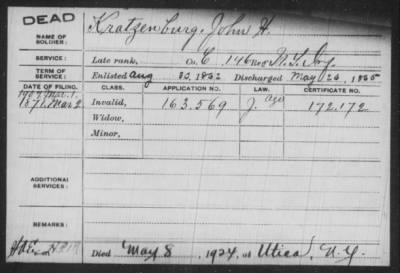 DEAD
NAME OF SOLDIER: Kratzenburg, John H.
SERVICE: Late rank, Co. C, 146 Reg't N.Y. Inf.
TERM OF SERVICE: Enlisted Aug 30, 1862 Discharged May 26, 1865
DATE OF FILING. CLASS. APPLICATION NO. LAW. CERTIFICATE NO.
1907 Mar. 1.
1871 Mar 2 Invalid, 163.569 J. Age 172.172
Widow,
Minor,
ADDITIONAL SERVICES:
REMARKS:
Died May 8, 1924, at Utica, N.Y.